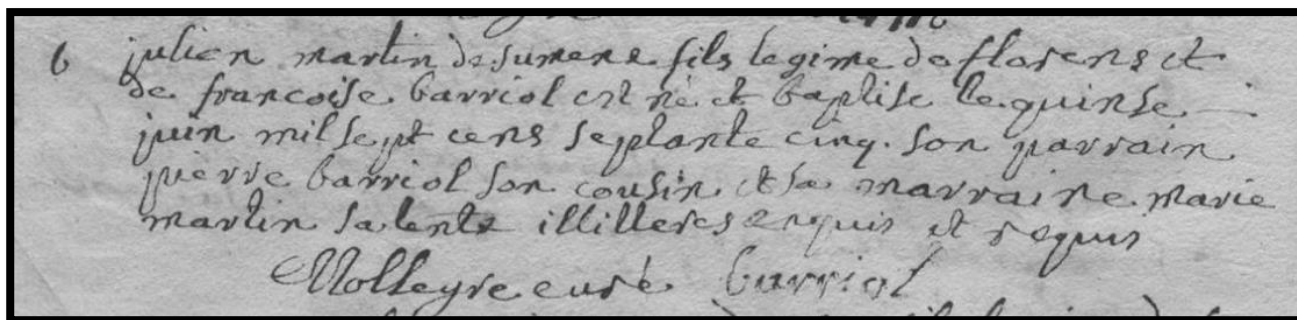 6 julien martin de sumene fils legime de florens et
de francoise barriol est né et baptise le quinse
juin mil sept cens septante cinq. son parrain
pierre barriol son cousin et sa marraine marie
martin sa tente illilleres enquis et requis
Molleyre curé barriol